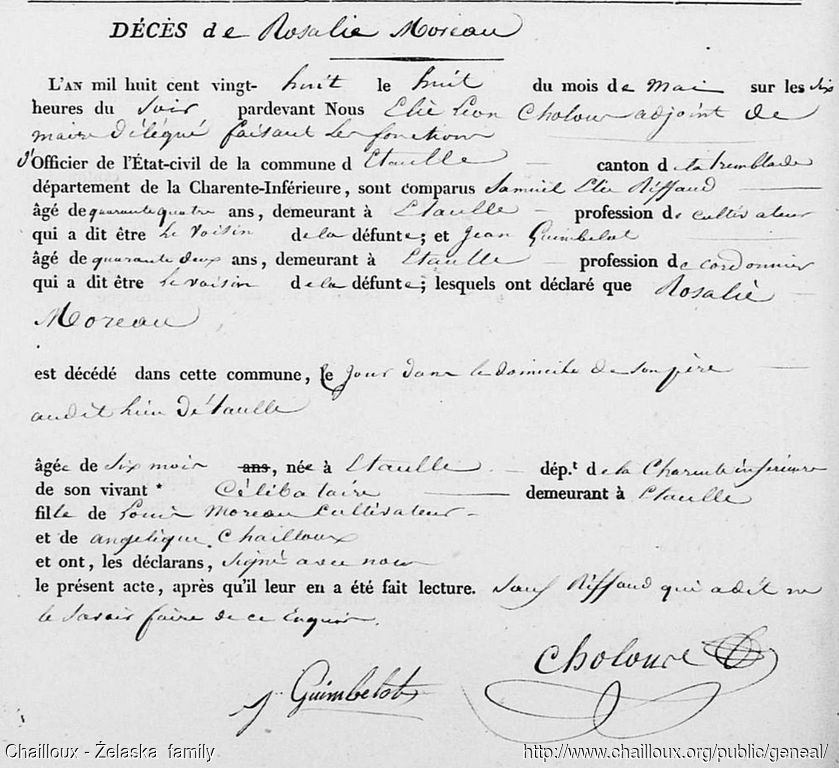 DÉCÈS de Rosalie Moreau
L'AN mil huit cent vingt- huit le huit du mois de Mai sur les six
heures du Soir pardevant Nous Elie Léon Cholous adjoint de
maire délégué faisant les fonction
d'Officier de l'État-civil de la commune d Etaulle canton de la tremblade
département de la Charente-Inférieure, sont comparus Samuel Elie Riffaud
âgé de quarante quatre ans, demeurant à Etaulle profession de cultivateur
qui a dit être le voisin de la défunte; et Jean Guimbelot
âgé de quarante deux ans, demeurant à Etaulle profession de cordonnier
qui a dit être le voisin de la défunte; lesquels ont déclaré que Rosalie
Moreau
est décédé dans cette commune, le jour dans le domicile de son père
audit lieu d'étaulle
âgée de six mois ans, née à Etaulle dép.t de la Charente inférieure
de son vivant * Célibataire demeurant à Etaulle
fille de Louis Moreau cultivateur
et de angelique Chailloux
et ont, les déclarans, signé avec nous
le présent acte, après qu'il leur en a été fait lecture. Sauf Riffaud qui a dit ne
le savoir faire de ce Enquis.
Cholous
J Guimbelot
Chailloux - Żelaska family
http://www.chailloux.org/public/geneal/